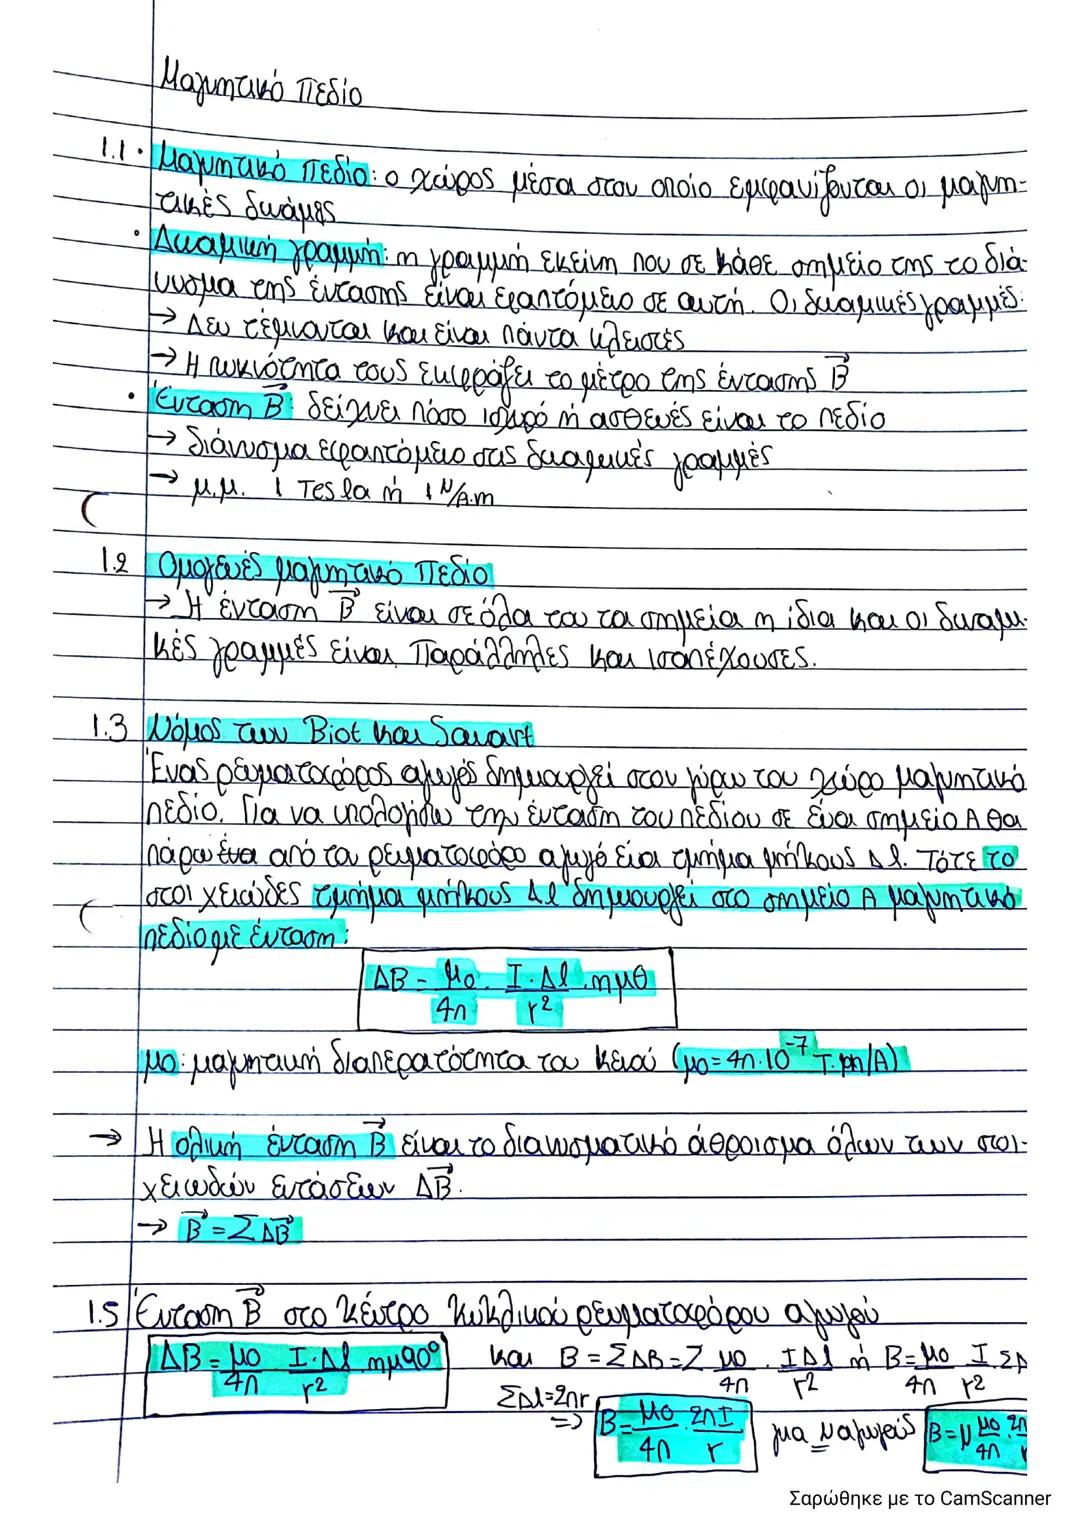 Μαγνητικό Πεδίο
1.1 · Μαγνητικό Πεδίο: ο χώρος μέσα στον οποίο εμφανίζονται οι μαγνη-
τικές δυνάμεις
· Δυναμική γραμμή: η γραμμή εκείνη που σε κάθε σημείο της το διά-
νυσμα της έντασης είναι εφαπτόμενο σε αυτή. Οι δυναμικές γραμμές:
→ Δεν τέμνονται και είναι πάντα κλειστές
→ Η πυκνότητα τους εκφράζει το μέτρο της έντασης B⃗
· Ένταση B⃗: δείχνει πόσο ισχυρό ή ασθενές είναι το πεδίο
→ διάνυσμα εφαπτόμενο στις δυναμικές γραμμές
→ μ.μ. 1 Tesla ή 1 N/A.m
1.2 Ομογενές μαγνητικό Πεδίο
→ Η ένταση B⃗ είναι σε όλα του τα σημεία η ίδια και οι δυναμι-
κές γραμμές είναι Παράλληλες και ισαπέχουσες.
1.3 Νόμος των Biot και Savart
Ένας ρευματοφόρος αγωγός δημιουργεί στον γύρω του χώρο μαγνητικό
πεδίο. Για να υπολογίσω την ένταση του πεδίου σε ένα σημείο Α θα
πάρω ένα από τον ρευματοφόρο αγωγό ένα τμήμα μήκους Δl. Τότε το
στοιχειώδες τμήμα μήκους Δl δημιουργεί στο σημείο Α μαγνητικό
πεδίο με ένταση:
ΔB = μο/4π · I·Δl/r² · ημθ
μο: μαγνητική διαπερατότητα του κενού (μο=4π·10⁻⁷ T·m/A)
→ Η ολική ένταση B⃗ είναι το διανυσματικό άθροισμα όλων των στοι-
χειωδών εντάσεων ΔB⃗.
→ B⃗ = ΣΔB⃗
1.5 Ένταση B⃗ στο κέντρο κυκλικού ρευματοφόρου αγωγού
ΔB = μο/4π I·Δl/r² ημ90° και B = ΣΔB = Σ μο/4π · IΔl/r² ή B = μο/4π I/r² ·ΣΔ
ΣΔl=2πr ⇒ B = μο/4π · 2πI/r για Ν αγωγούς B = Ν μο/4π · 2π
Σαρώθηκε με το CamScanner